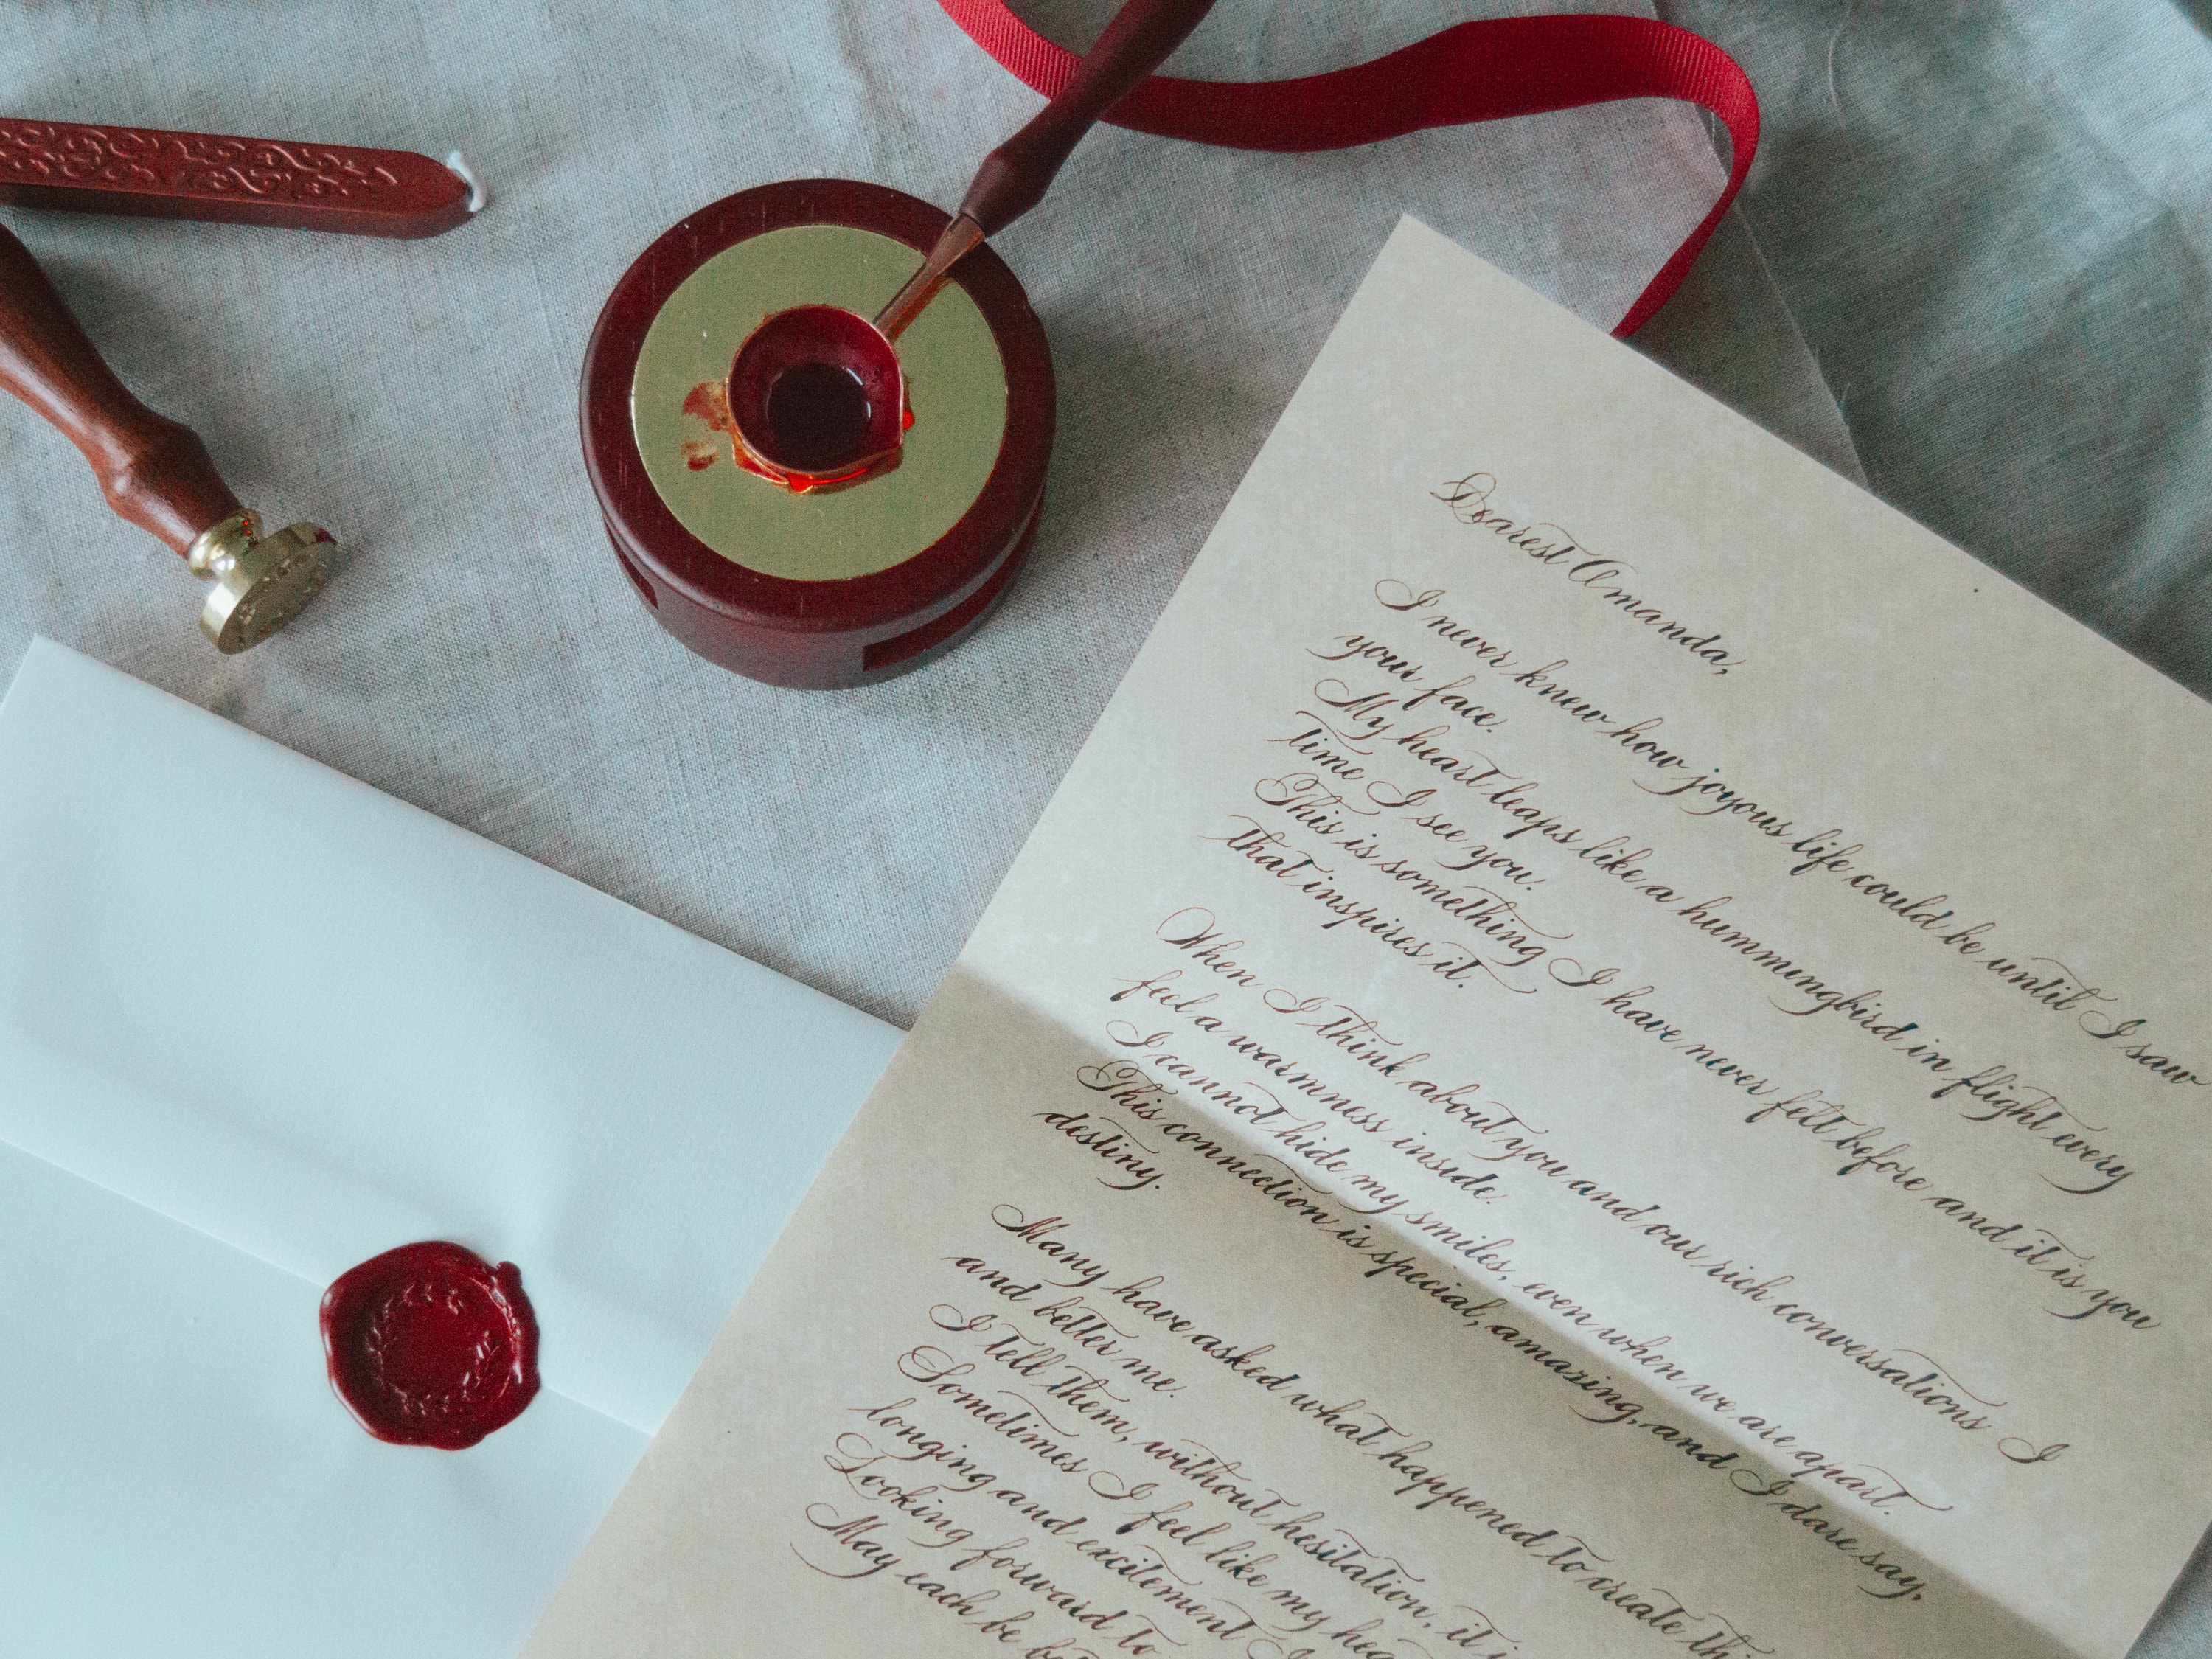 Dearest Amanda,
I never knew how joyous life could be until I saw
your face.
My heart leaps like a hummingbird in flight every
time I see you.
This is something I have never felt before and it is you
that inspires it.
When I think about you and our rich conversations I
feel a warmness inside.
I cannot hide my smiles, even when we are apart.
This connection is special, amazing, and I dare say,
destiny.
Many have asked what happened to create
and better me.
I tell them, without hesitation, it
Sometimes I feel like my
longing and excitement
Looking forward to
May each be